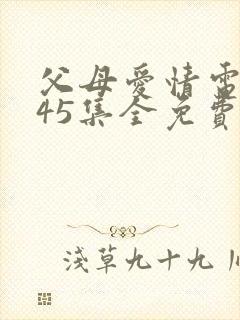 父母愛情電
45集全免費
淺草九十九